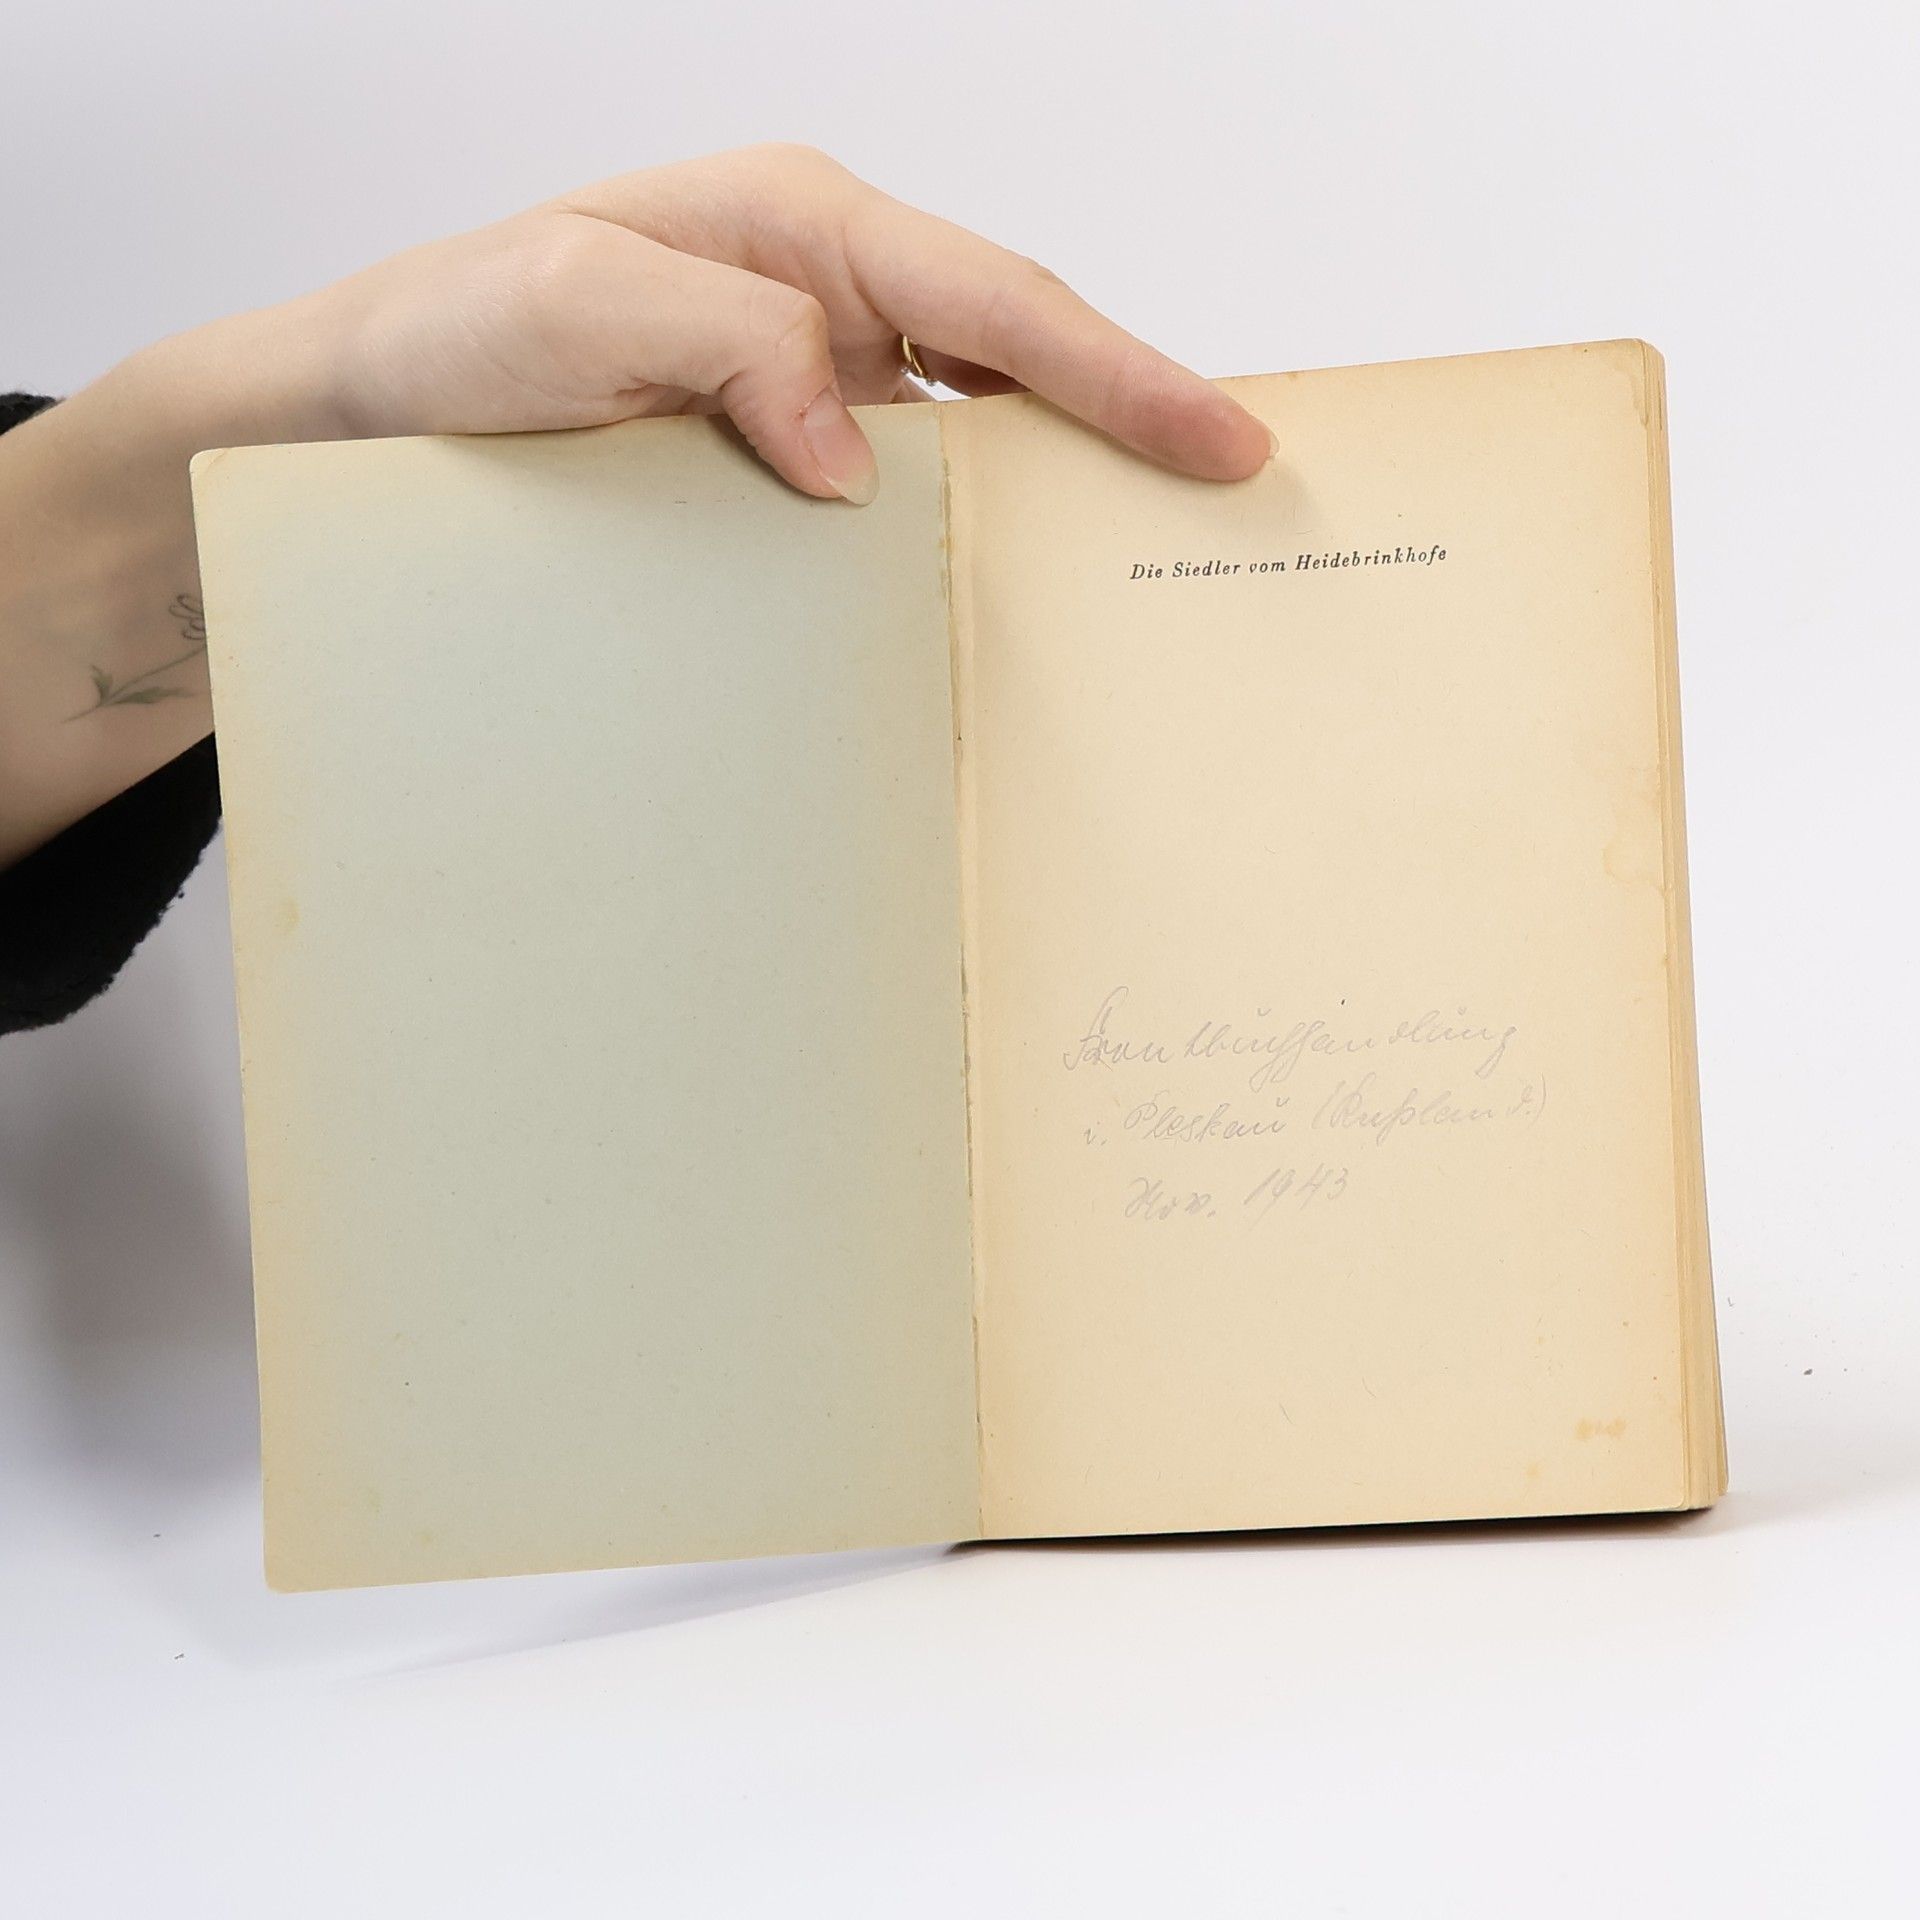 Die Siedler vom Heidebrinkhofe
Frontbuchhandlung
i. Pleskau (Rußland.)
Nov. 1943